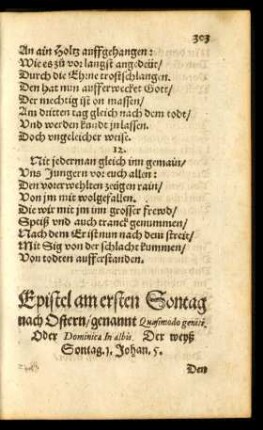 303
An ain Holtz auffgehangen:
Wie es zů vor langst angedeüt/
Durch die Ehrne trostschlangen.
Den hat nun aufferwecket Gott/
Der mechtig ist on massen/
Am dritten tag gleich nach dem todt/
Vnd werden kundt zulassen.
Doch vngeleicher weise.
12.
Nit jederman gleich inn gemain/
Vns Jungern vor euch allen:
Den vorerwehlten zeügen rain/
Von jm mit wolgefallen.
Die wir mit jm inn grosser frewd/
Speiß vnd auch tranck genummen/
Nach dem Er ist nun nach dem streit/
Mit Sig von der schlacht kummen/
Von todten aufferstanden.
Epistel am ersten Sontag
nach Ostern/genannt Quasimodo geniti,
Oder Dominica In albis. Der weyß
Sontag. 1. Johan. 5.
Den